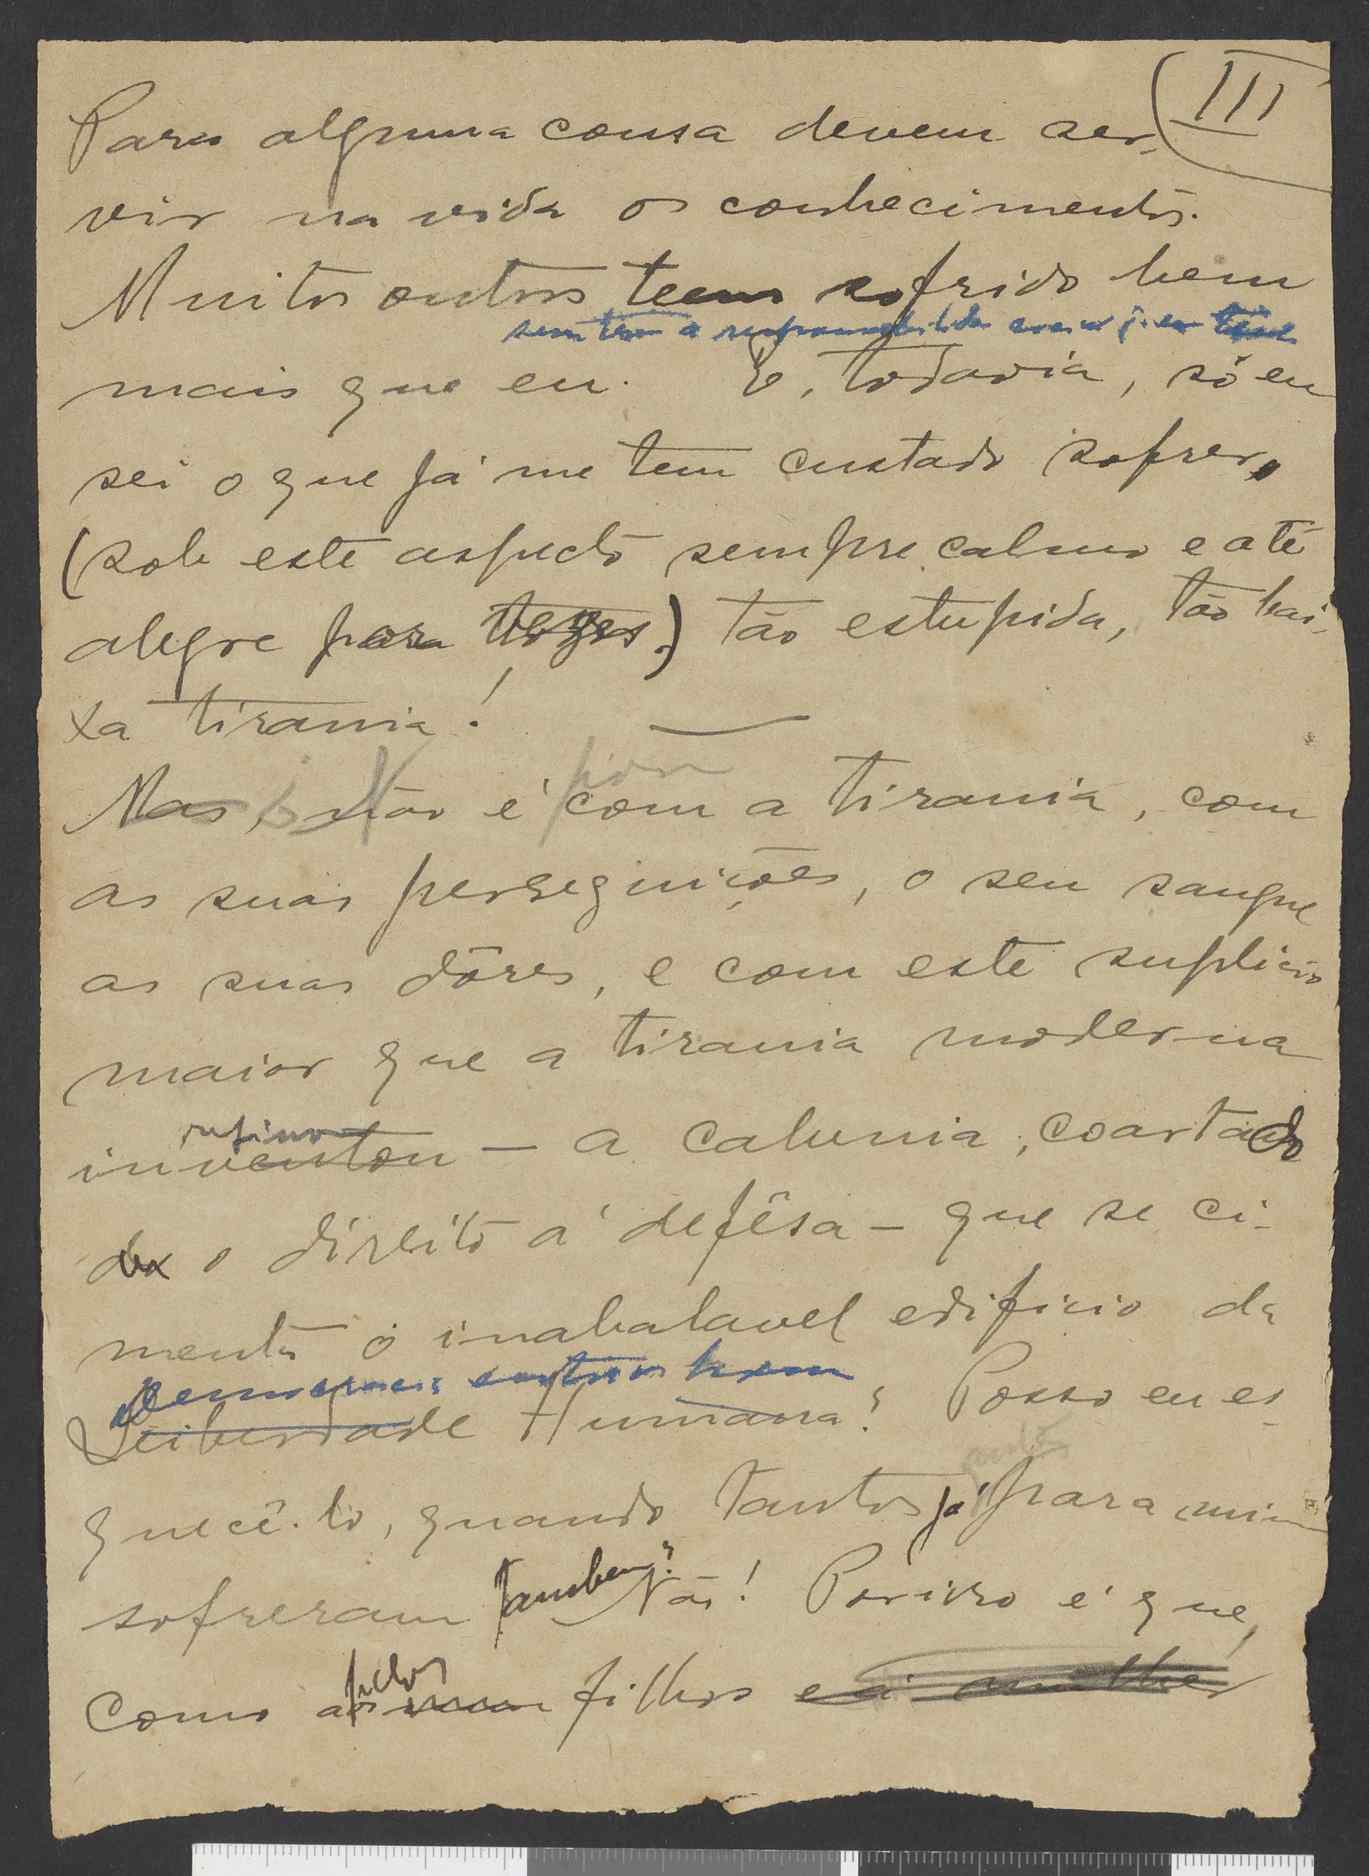 III
Para alguma cousa devem ser-
vir na vida os conhecimentos.
Muitos outros teem sofrido bem
sem ter a responsabilidade
mais que eu. E, todavia, só eu
sei o que já me tem custado sofrer,
(sob este aspecto sempre calmo e até
alegre para vezes) tão estupida, tão bai-
xa tirania!
Mas, não é com a tirania, com
as suas perseguições, o seu sangue
as suas dôres, e com este suplicio
maior que a tirania moderna
refinou
inventou - a calunia, coartado
o direito á defêsa - que se ci-
menta o inabalavel edificio da
Leiberdade Humana? Posso eu es-
quecê-lo, quando tantos já para mim
sofreram tambem? Não! Por isso é que,
pelos
como filhos e á mulher